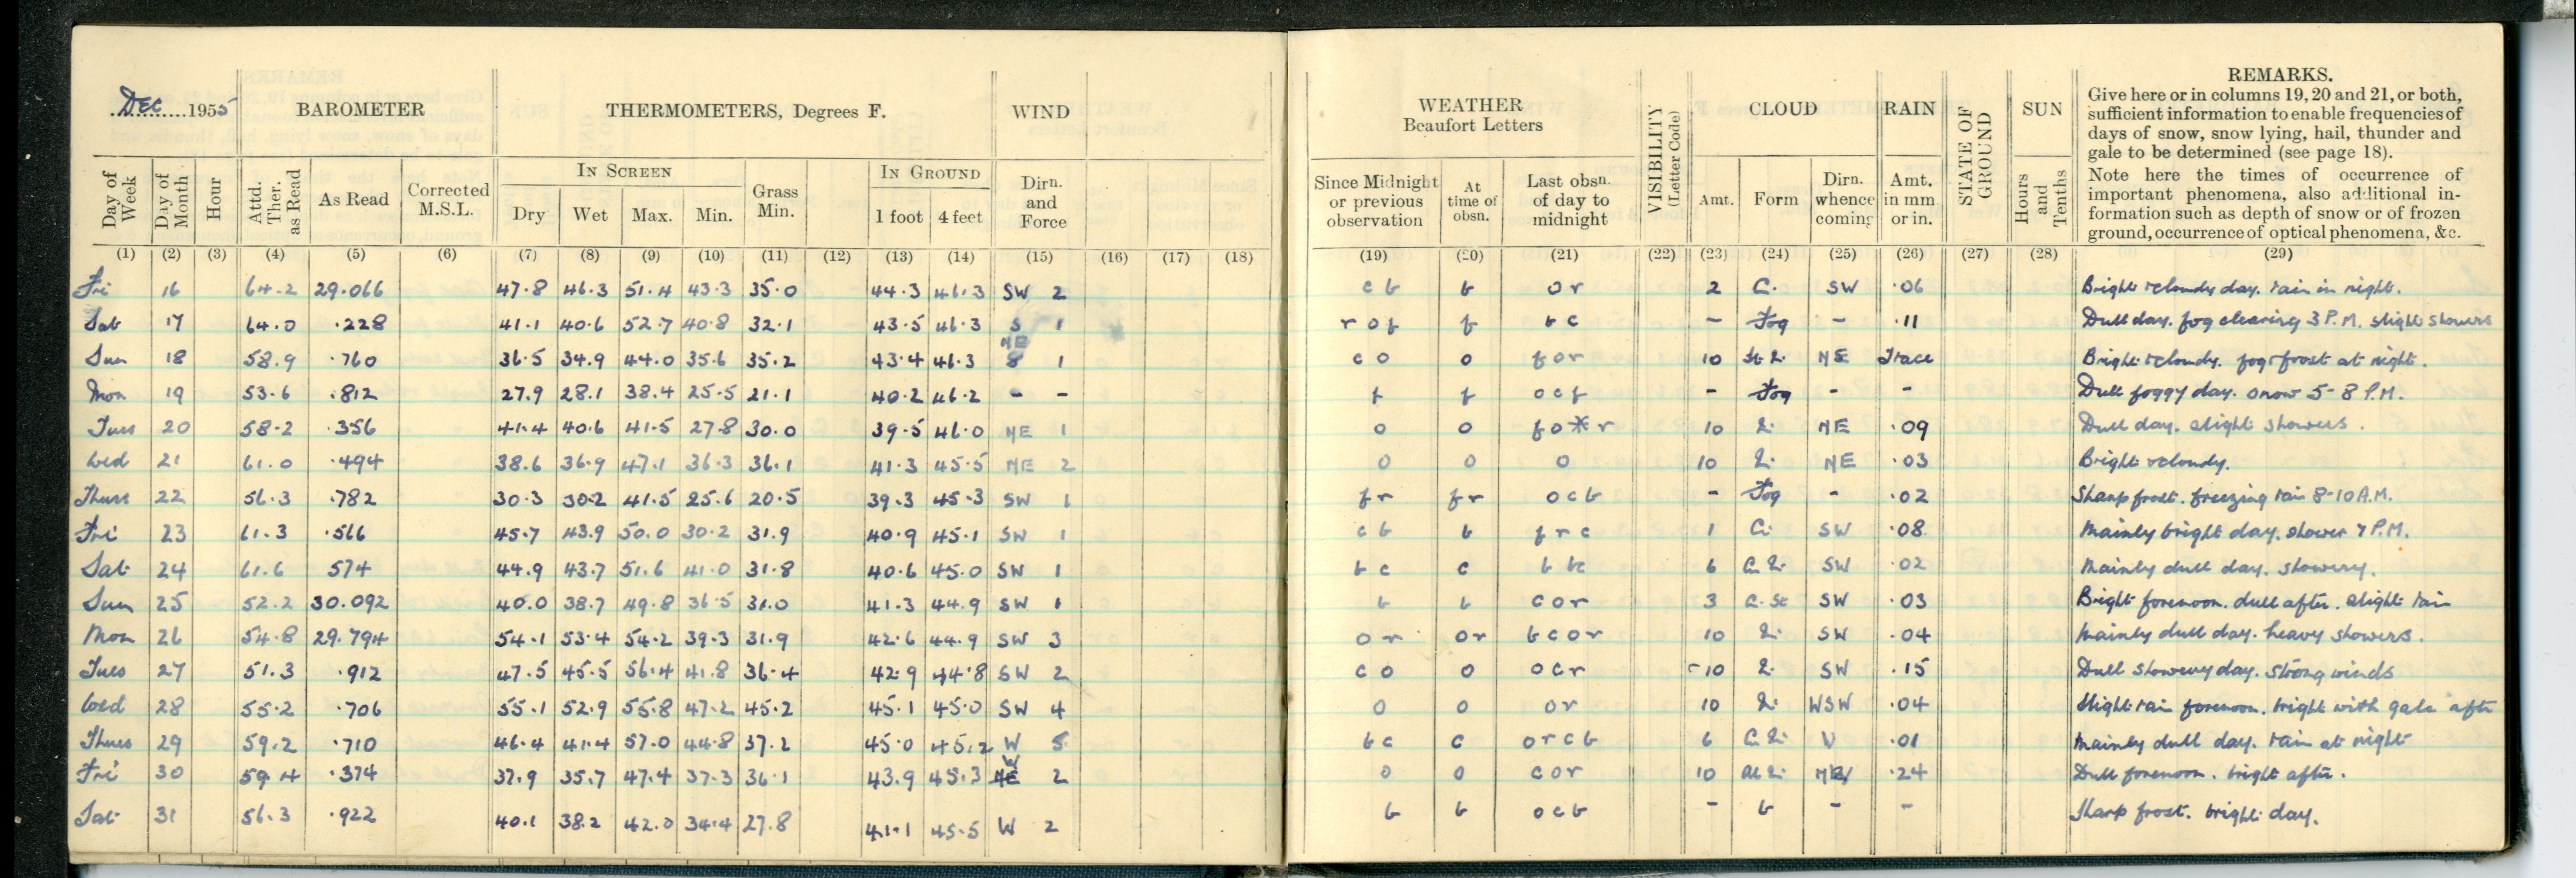 Dec 1955 BAROMETER THERMOMETERS, Degrees F. WIND
Day of Week Day of Month Hour Attd. Ther. as Read As Read Corrected M.S.L. IN SCREEN Dry Wet Max. Min. Grass Min. IN GROUND 1 foot 4 feet Dirn. and Force
(1) (2) (3) (4) (5) (6) (7) (8) (9) (10) (11) (12) (13) (14) (15) (16) (17) (18)
Fri 16 64.2 29.066 47.8 46.3 51.4 43.3 35.0 44.3 46.3 SW 2
Sat 17 64.0 .228 41.1 40.6 52.7 40.8 32.1 43.5 46.3 S 1
Sun 18 58.9 .760 36.5 34.9 44.0 35.6 35.2 43.4 46.3 NE 1
Mon 19 53.6 .812 27.9 28.1 38.4 25.5 21.1 40.2 46.2 - -
Tues 20 58.2 .356 41.4 40.6 41.5 27.8 30.0 39.5 46.0 NE 1
Wed 21 61.0 .494 38.6 36.9 47.1 36.3 36.1 41.3 45.5 NE 2
Thurs 22 56.3 .782 30.3 30.2 41.5 25.6 20.5 39.3 45.3 SW 1
Fri 23 61.3 .566 45.7 43.9 50.0 30.2 31.9 40.9 45.1 SW 1
Sat 24 61.6 574 44.9 43.7 51.6 41.0 31.8 40.6 45.0 SW 1
Sun 25 52.2 30.092 40.0 38.7 49.8 36.5 31.0 41.3 44.9 SW 1
Mon 26 54.8 29.794 54.1 53.4 54.2 39.3 31.9 42.6 44.9 SW 3
Tues 27 51.3 .912 47.5 45.5 56.4 41.8 36.4 42.9 44.8 SW 2
Wed 28 55.2 .706 55.1 52.9 55.8 47.2 45.2 45.1 45.0 SW 4
Thurs 29 59.2 .710 46.4 41.4 57.0 44.8 37.2 45.0 45.2 W 5
Fri 30 59.4 .374 37.9 35.7 47.4 37.3 36.1 43.9 45.3 W 2
Sat 31 56.3 .922 40.1 38.2 42.0 34.4 27.8 41.1 45.5 W 2
WEATHER Beaufort Letters VISIBILITY (Letter Code) CLOUD RAIN STATE OF GROUND SUN REMARKS.
Give here or in columns 19, 20 and 21, or both,
sufficient information to enable frequencies of
days of snow, snow lying, hail, thunder and
gale to be determined (see page 18).
Note here the times of occurrence of
important phenomena, also additional in-
formation such as depth of snow or of frozen
ground, occurrence of optical phenomena, &c.
Since Midnight or previous observation At time of obsn. Last obsn. of day to midnight Amt. Form Dirn. whence coming Amt. in mm or in. Hours and Tenths
(19) (20) (21) (22) (23) (24) (25) (26) (27) (28) (29)
c b b o r 2 C. SW .06 Bright & cloudy day. rain in night.
r o f f b c - Fog - .11 Dull day. fog clearing 3 P.M. slight showers
c o o f o r 10 NE Trace Bright & cloudy. fog & frost at night.
f f o c f - Fog - - Dull foggy day. snow 5-8 P.M.
o o f o * r 10 NE .09 Dull day. slight showers.
o o o 10 NE .03 Bright & cloudy.
f r f r o c b - Fog - .02 Sharp frost. freezing rain 8-10 A.M.
c b b f r c 1 C. SW .08 Mainly bright day. shower 7 P.M.
b c c b bc 6 SW .02 Mainly dull day. showery.
b b c o r 3 SW .03 Bright forenoon. dull after. slight rain
o r o r b c o r 10 SW .04 Mainly dull day. heavy showers.
c o o o c r 10 SW .15 Dull showery day. strong winds
o o o r 10 WSW .04 Slight rain forenoon. bright with gale after
b c c o r c b 6 .01 Mainly dull day. rain at night
o o c o r 10 .24 Dull forenoon. bright after.
b b o c b - b - - Sharp frost. bright day.